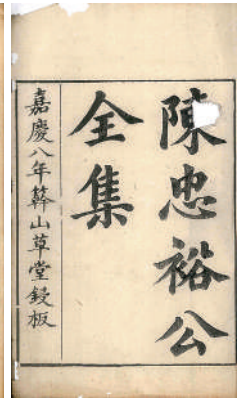 陳忠裕公
全集
嘉慶八年簳山草堂鋟板